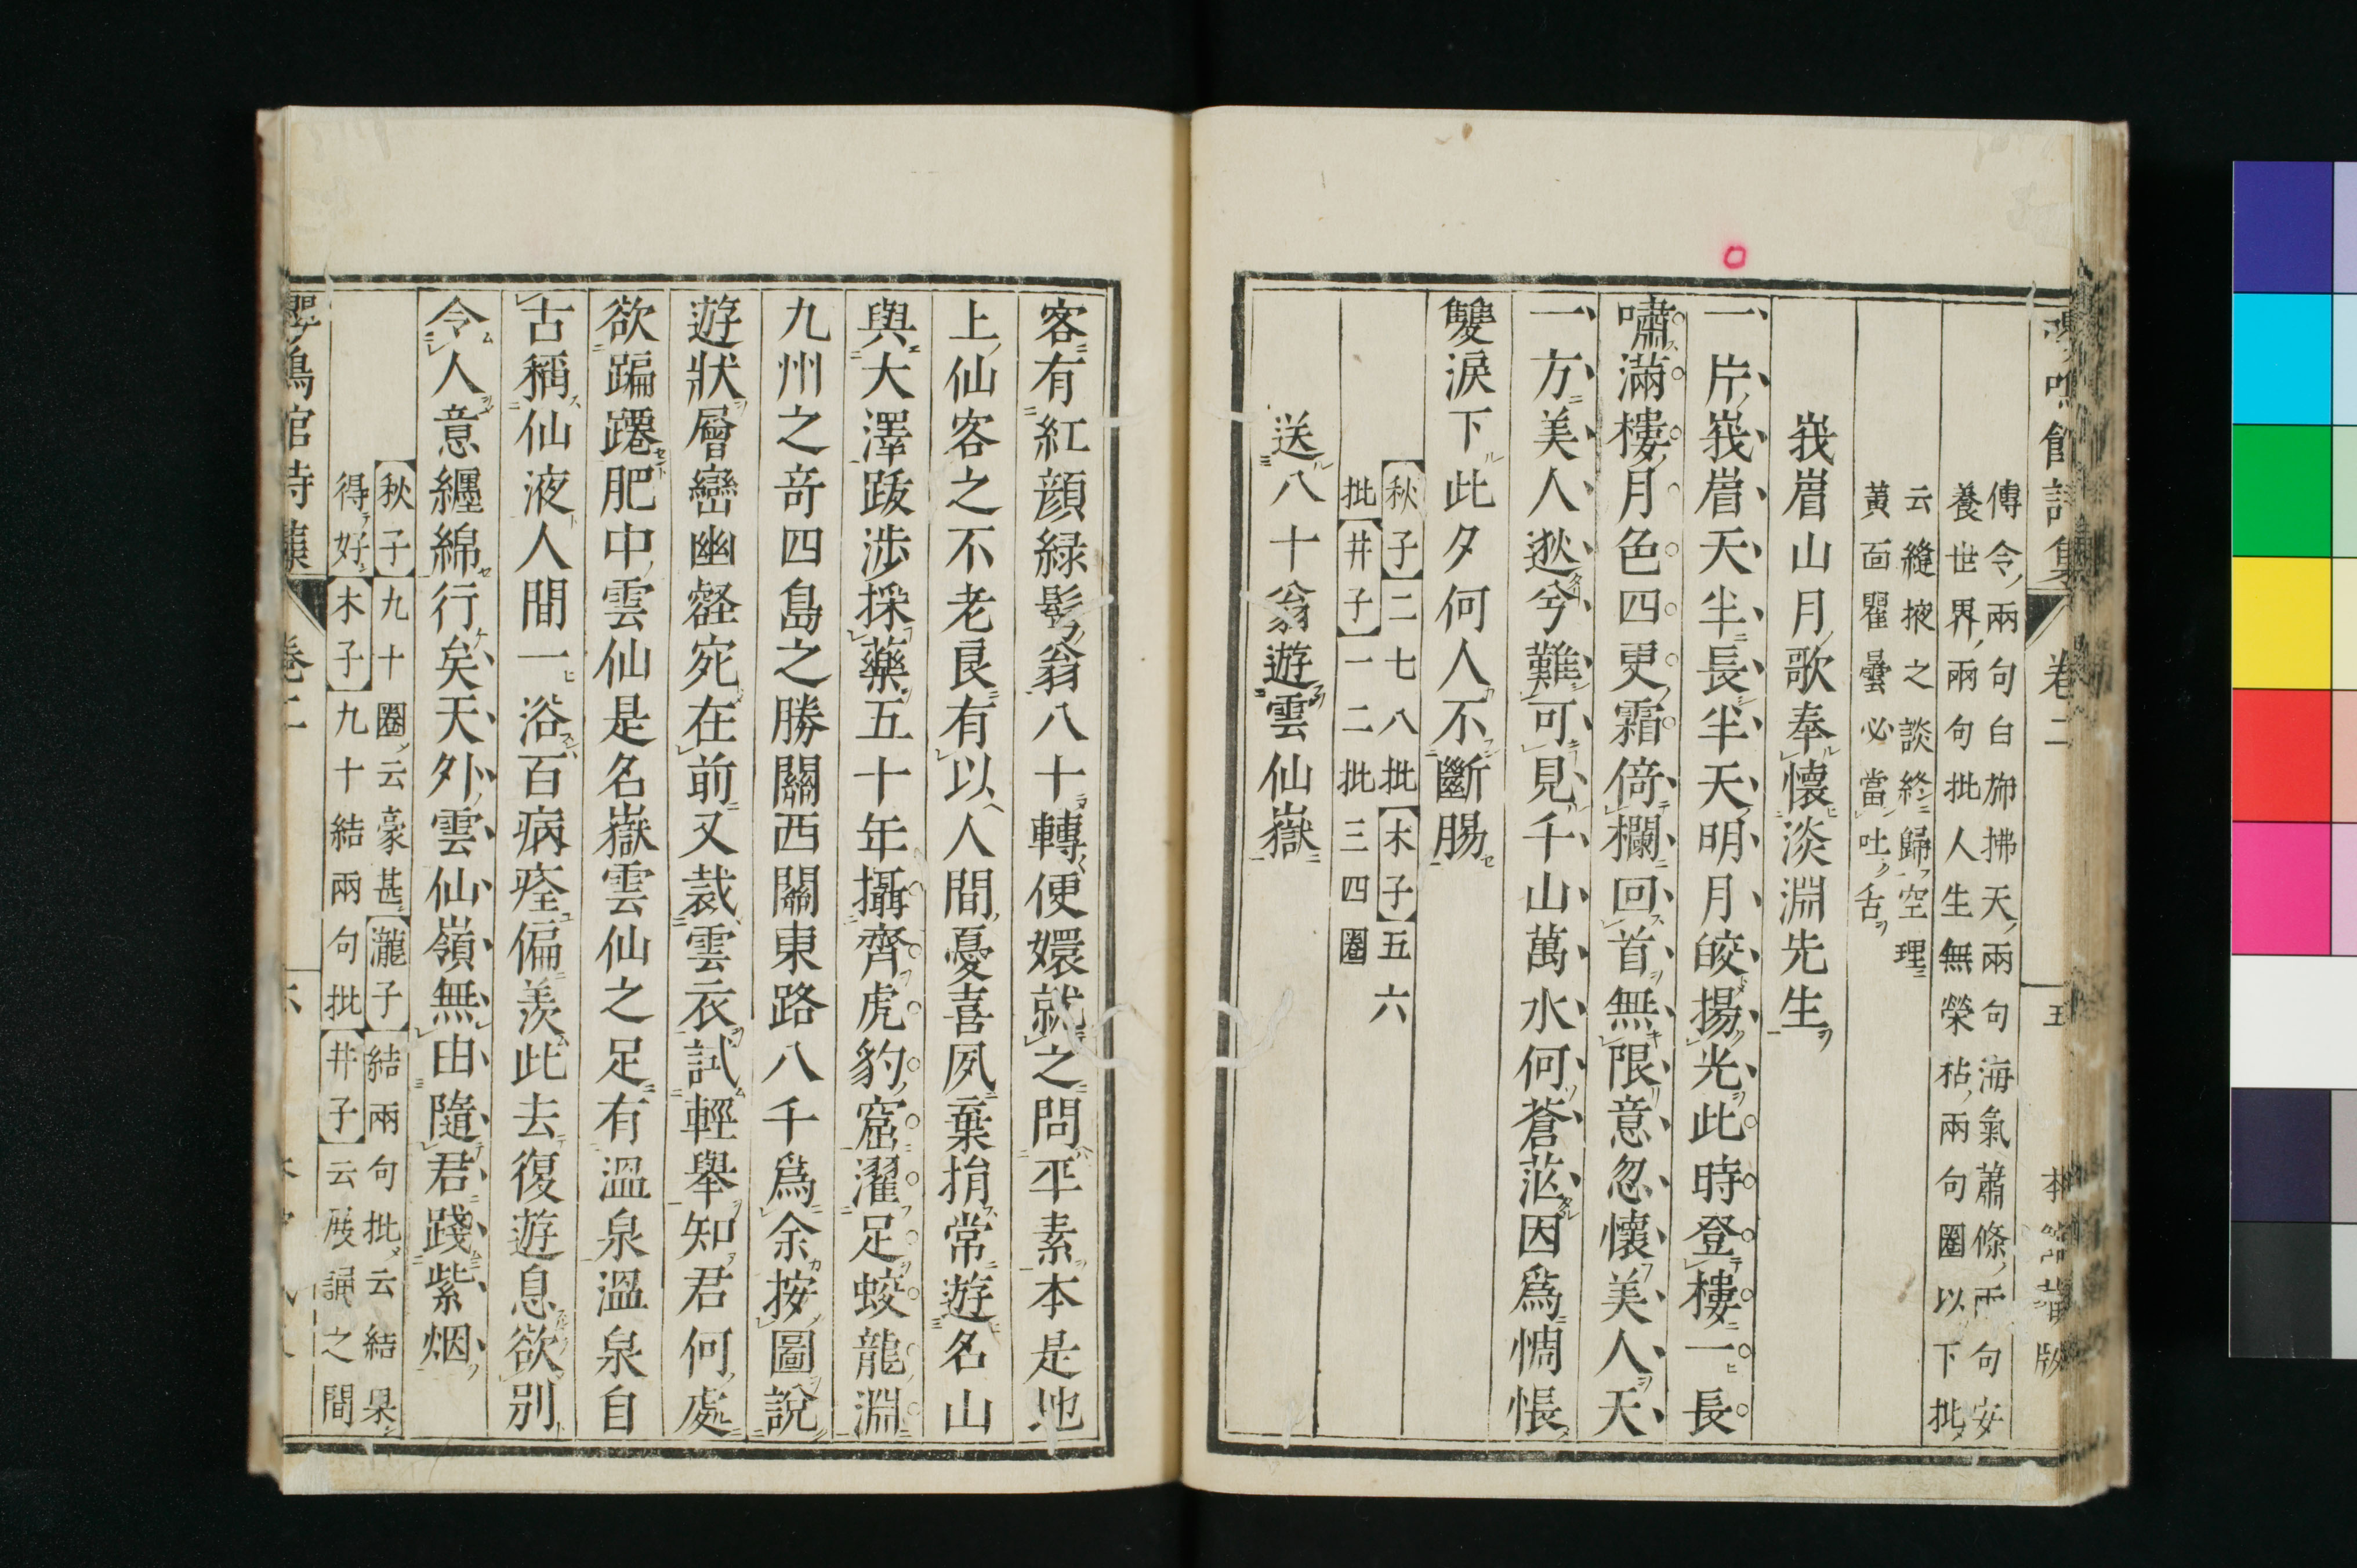 嚶鳴館詩集 卷二 五
傳令兩句白斾拂天兩句海氣蕭條兩句安
養世界兩句批人生無榮枯兩句圈以下批
云縫掖之談終歸空理
黃面瞿曇必當吐舌
峩眉山月歌奉懷淡淵先生
一片峩眉天半長半天明月皎揚光此時登樓一長
嘯滿樓月色四更霜倚欄回首無限意忽懷美人天
一方美人逖兮難可見千山萬水何蒼茫因爲惆悵
雙淚下此夕何人不斷腸
【秋子】二七八批【木子】五六
批【井子】一二批三四圈
送八十翁遊雲仙嶽
客有紅顔緑髩翁八十轉便嬛就之問平素本是地
上仙客之不老良有以人間憂喜夙棄捐常遊名山
與大澤跋涉採藥五十年攝齊虎豹窟濯足蛟龍淵
九州之奇四島之勝關西關東路八千爲余按圖說
遊狀層巒幽壑宛在前又裁雲衣試輕舉知君何處
欲蹁躚肥中雲仙是名嶽雲仙之足有溫泉溫泉自
古稱仙液人間一浴百病痊偏羨此去復遊息欲別
令人意纏綿行矣天外雲仙嶺無由隨君踐紫烟
【秋子】九十圈云豪甚【瀧子】結兩句批云結果
得好【木子】九十結兩句批【井子】云展誦之間
嚶鳴館詩集 卷二